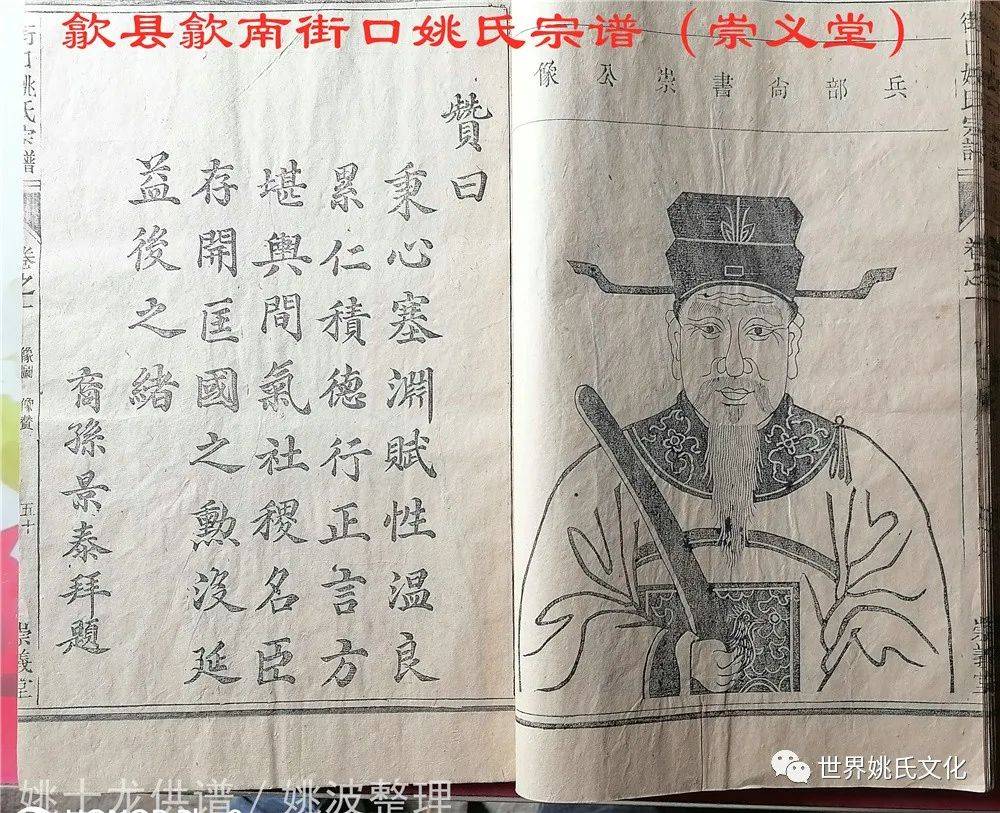 歙县歙南街口姚氏宗谱（崇义堂）
兵部尚書崇公像
贊曰
秉心塞淵賦性溫良
累仁積德行正言方
堪輿間氣社稷名臣
存開匡國之勳沒延
益後之緒
裔孫景泰拜題
街口姚氏宗譜
卷之一
像圖 像贊
五十
崇義堂
街口姚氏宗譜
卷之一
崇義堂
世界姚氏文化
姚士龙供谱/姚波整理